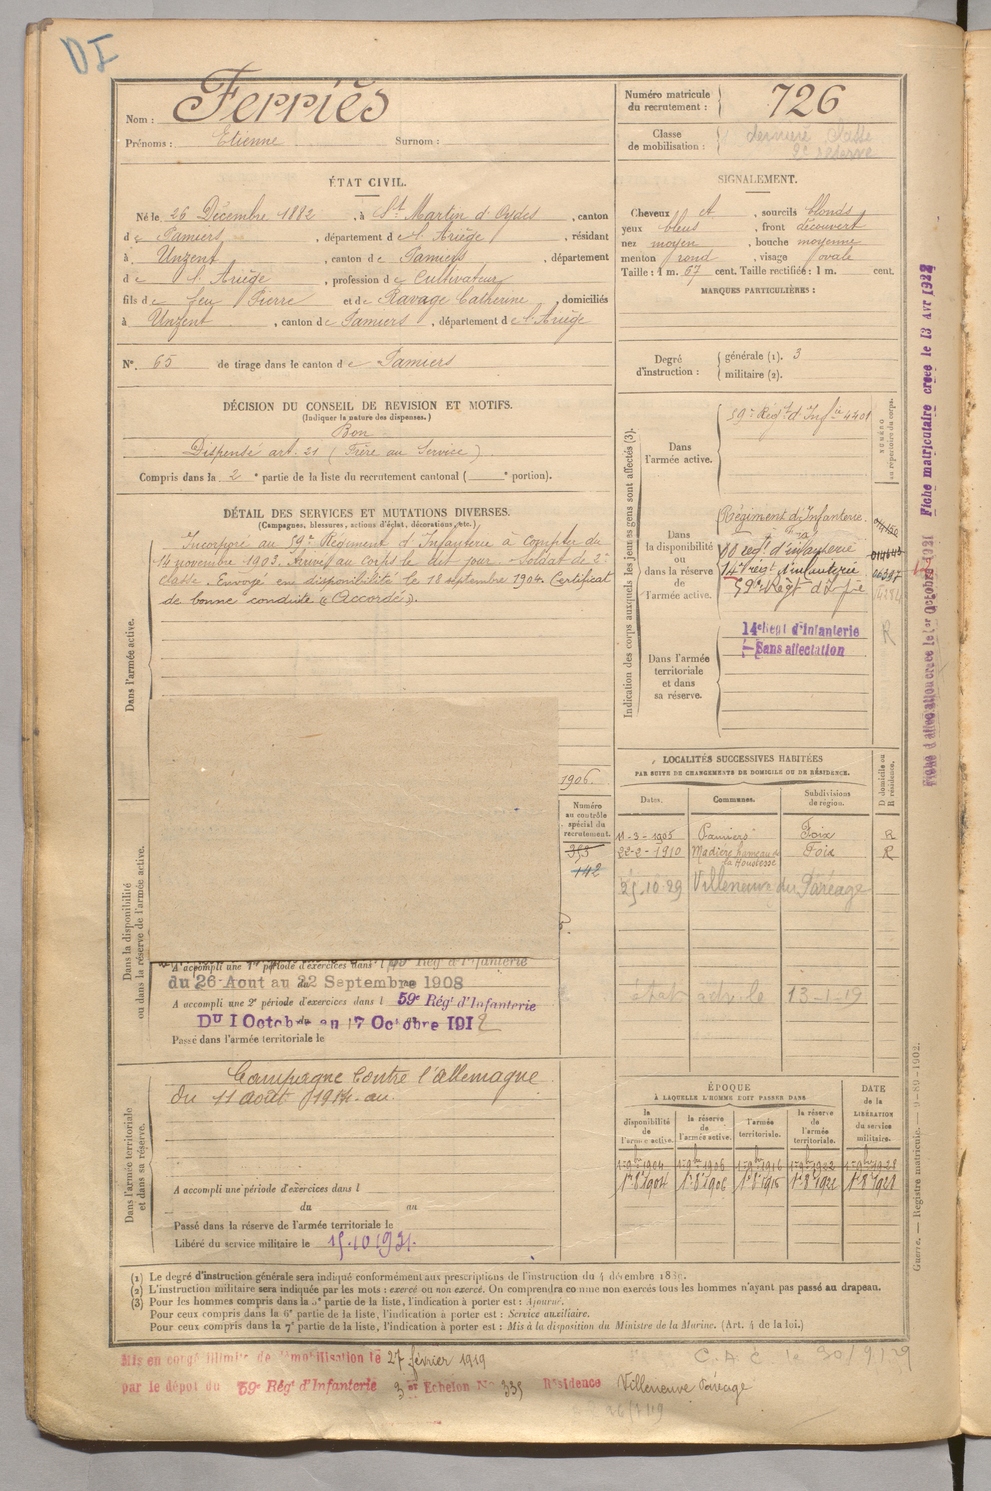 DI
Nom : Ferriès
Prénoms : Etienne Surnom :
Numéro matricule du recrutement : 726
Classe de mobilisation : dernière classe 2e réserve
ÉTAT CIVIL.
Né le 26 Décembre 1882, à St Martin d'Oydes, canton
de Pamiers, département de l'Ariège, résidant
à Unzent, canton de Pamiers, département
de l'Ariège, profession de Cultivateur
fils de feu Pierre et de Ravage Catherine, domiciliés
à Unzent, canton de Pamiers, département de l'Ariège
N° 65 de tirage dans le canton de Pamiers
SIGNALEMENT.
Cheveux et, sourcils blonds
yeux bleus, front découvert
nez moyen, bouche moyenne
menton rond, visage ovale
Taille : 1 m. 67 cent. Taille rectifiée : 1 m. cent.
MARQUES PARTICULIÈRES :
Degré d'instruction : générale (1). 3
militaire (2).
DÉCISION DU CONSEIL DE REVISION ET MOTIFS.
(Indiquer la nature des dispenses.)
Bon
Dispensé art. 21 (Frère au Service)
Compris dans la 2e partie de la liste du recrutement cantonal ( e portion).
DÉTAIL DES SERVICES ET MUTATIONS DIVERSES.
(Campagnes, blessures, actions d'éclat, décorations, etc.)
Dans l'armée active.
Incorporé au 59e Régiment d'Infanterie à compter du
14 novembre 1903. Arrivé au corps le dit jour. Soldat de 2e
classe. Envoyé en disponibilité le 18 septembre 1904. Certificat
de bonne conduite « Accordé ».
1906.
Numéro au contrôle spécial du recrutement.
353
142
Dans la disponibilité ou dans la réserve de l'armée active.
A accompli une 1re période d'exercices dans l Rég d'Infanterie
du 26 Aout au 22 Septembre 1908
A accompli une 2e période d'exercices dans l 59e Régt d'Infanterie
Du 1 Octobre au 17 Octobre 1912
Passé dans l'armée territoriale le
Dans l'armée territoriale et dans sa réserve.
Campagne contre l'allemagne
du 11 août 1914 au
A accompli une période d'exercices dans l
du au
Passé dans la réserve de l'armée territoriale le
Libéré du service militaire le 15.10.1931.
Indication des corps auxquels les jeunes gens sont affectés (3).
NUMÉRO au répertoire du corps.
Dans l'armée active.
59e Régt d'Infie 4401
Dans la disponibilité ou dans la réserve de l'armée active.
Régiment d'Infanterie
regt d'infanterie
14e régt d'infanterie
59e Régt d'Infie
Dans l'armée territoriale et dans sa réserve.
14e Regt d'Infanterie
Sans affectation
R
Fiche matriculaire créée le 13 Avr 1922
LOCALITÉS SUCCESSIVES HABITÉES
PAR SUITE DE CHANGEMENTS DE DOMICILE OU DE RÉSIDENCE.
Dates. Communes. Subdivisions de région. D domicile ou R résidence.
11-3-1905 Pamiers Foix R
22-2-1910 Madière hameau de la Foix R
25.10.29 Villeneuve du Paréage
13-1-19
ÉPOQUE
À LAQUELLE L'HOMME DOIT PASSER DANS
la disponibilité de l'armée active.
la réserve de l'armée active.
l'armée territoriale.
la réserve de l'armée territoriale.
DATE de la LIBÉRATION du service militaire.
1er 8bre 1904 1er 8bre 1906
Guerre. — Registre matricule. — 9-89-1902.
(1) Le degré d'instruction générale sera indiqué conformément aux prescriptions de l'instruction du 4 décembre 1889.
(2) L'instruction militaire sera indiquée par les mots : exercé ou non exercé. On comprendra comme non exercés tous les hommes n'ayant pas passé au drapeau.
(3) Pour les hommes compris dans la 5e partie de la liste, l'indication à porter est : Ajourné.
Pour ceux compris dans la 6e partie de la liste, l'indication à porter est : Service auxiliaire.
Pour ceux compris dans la 7e partie de la liste, l'indication à porter est : Mis à la disposition du Ministre de la Marine. (Art. 4 de la loi.)
Mis en congé illimité de démobilisation le 27 février 1919
par le dépôt du 59e Régt d'Infanterie 3e Echelon No 335 Résidence Villeneuve Paréage